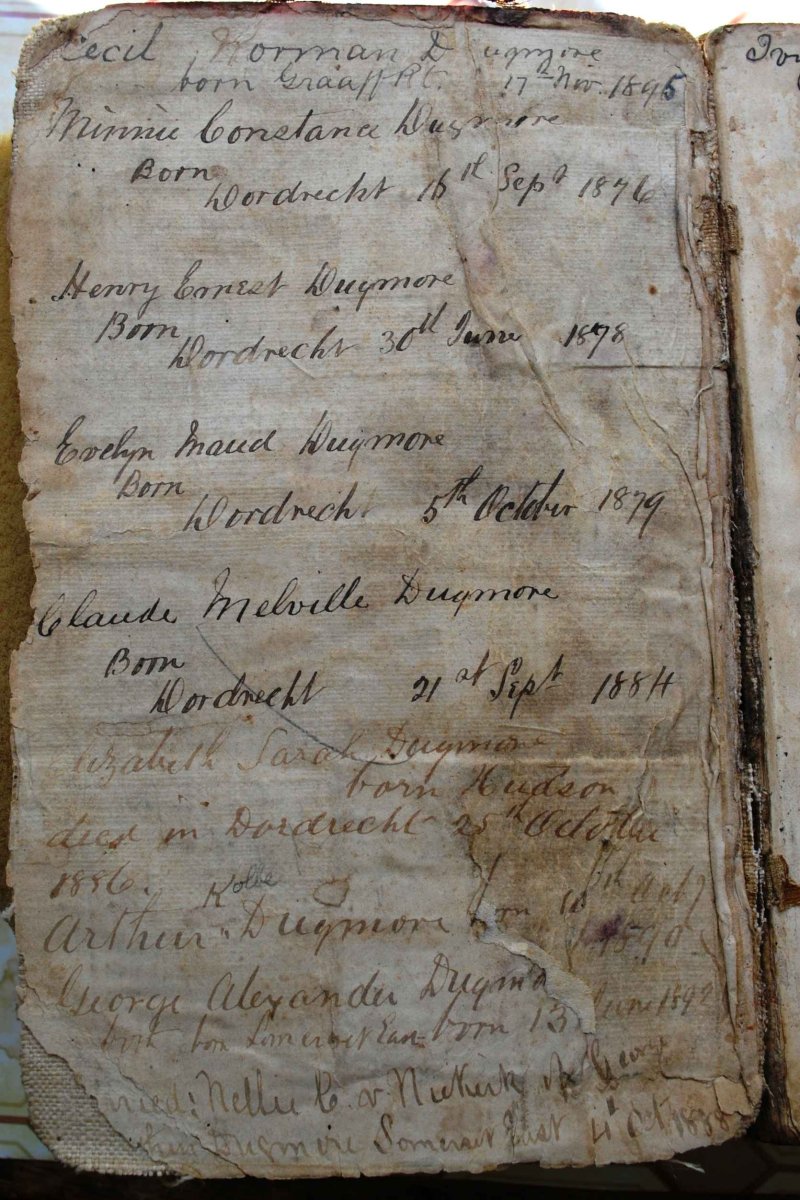 Cecil Norman Dugmore
born Graaff Rt. 17th Nov. 1895
Minnie Constance Dugmore
Born
Dordrecht 16th Sept 1876
Henry Ernest Dugmore
Born
Dordrecht 30th June 1878
Evelyn Maud Dugmore
Born
Dordrecht 5th October 1879
Claude Melville Dugmore
Born
Dordrecht 21st Sept 1884
Elizabeth Sarah Dugmore
born Hudson
died in Dordrecht 25th October
1886.
Kolbe
Arthur " Dugmore born Oct
1890
George Alexander Dugmore
Somerset East born 13 June 1892
Nellie C. v. Niekerk George
Dugmore Somerset East 4 Oct 1888